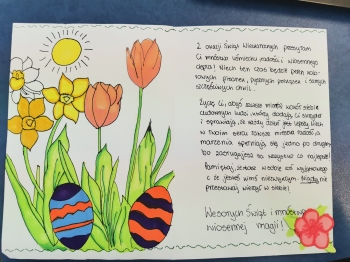 Z okazji Świąt Wielkanocnych przesyłam
Ci mnóstwo uśmiechu, radości i wiosennego
ciepła! Niech ten czas będzie pełen kolo-
rowych pisanek, pysznych potraw i samych
szczęśliwych chwil.
Życzę Ci, abyś zawsze miał wokół siebie
cudownych ludzi, którzy dodają Ci skrzydeł
i sprawiają, że każdy dzień jest lepszy. Niech
w Twoim sercu zawsze mieszka radość, a
marzenia spełniają się jedno po drugim,
bo zasługujesz na wszystko co najlepsze!
Pamiętaj, że masz w sobie coś wyjątkowego
i że jesteś kimś niezwykłym. Nigdy nie
przestawaj wierzyć w siebie!
Wesołych Świąt i mnóstwo
wiosennej magii!